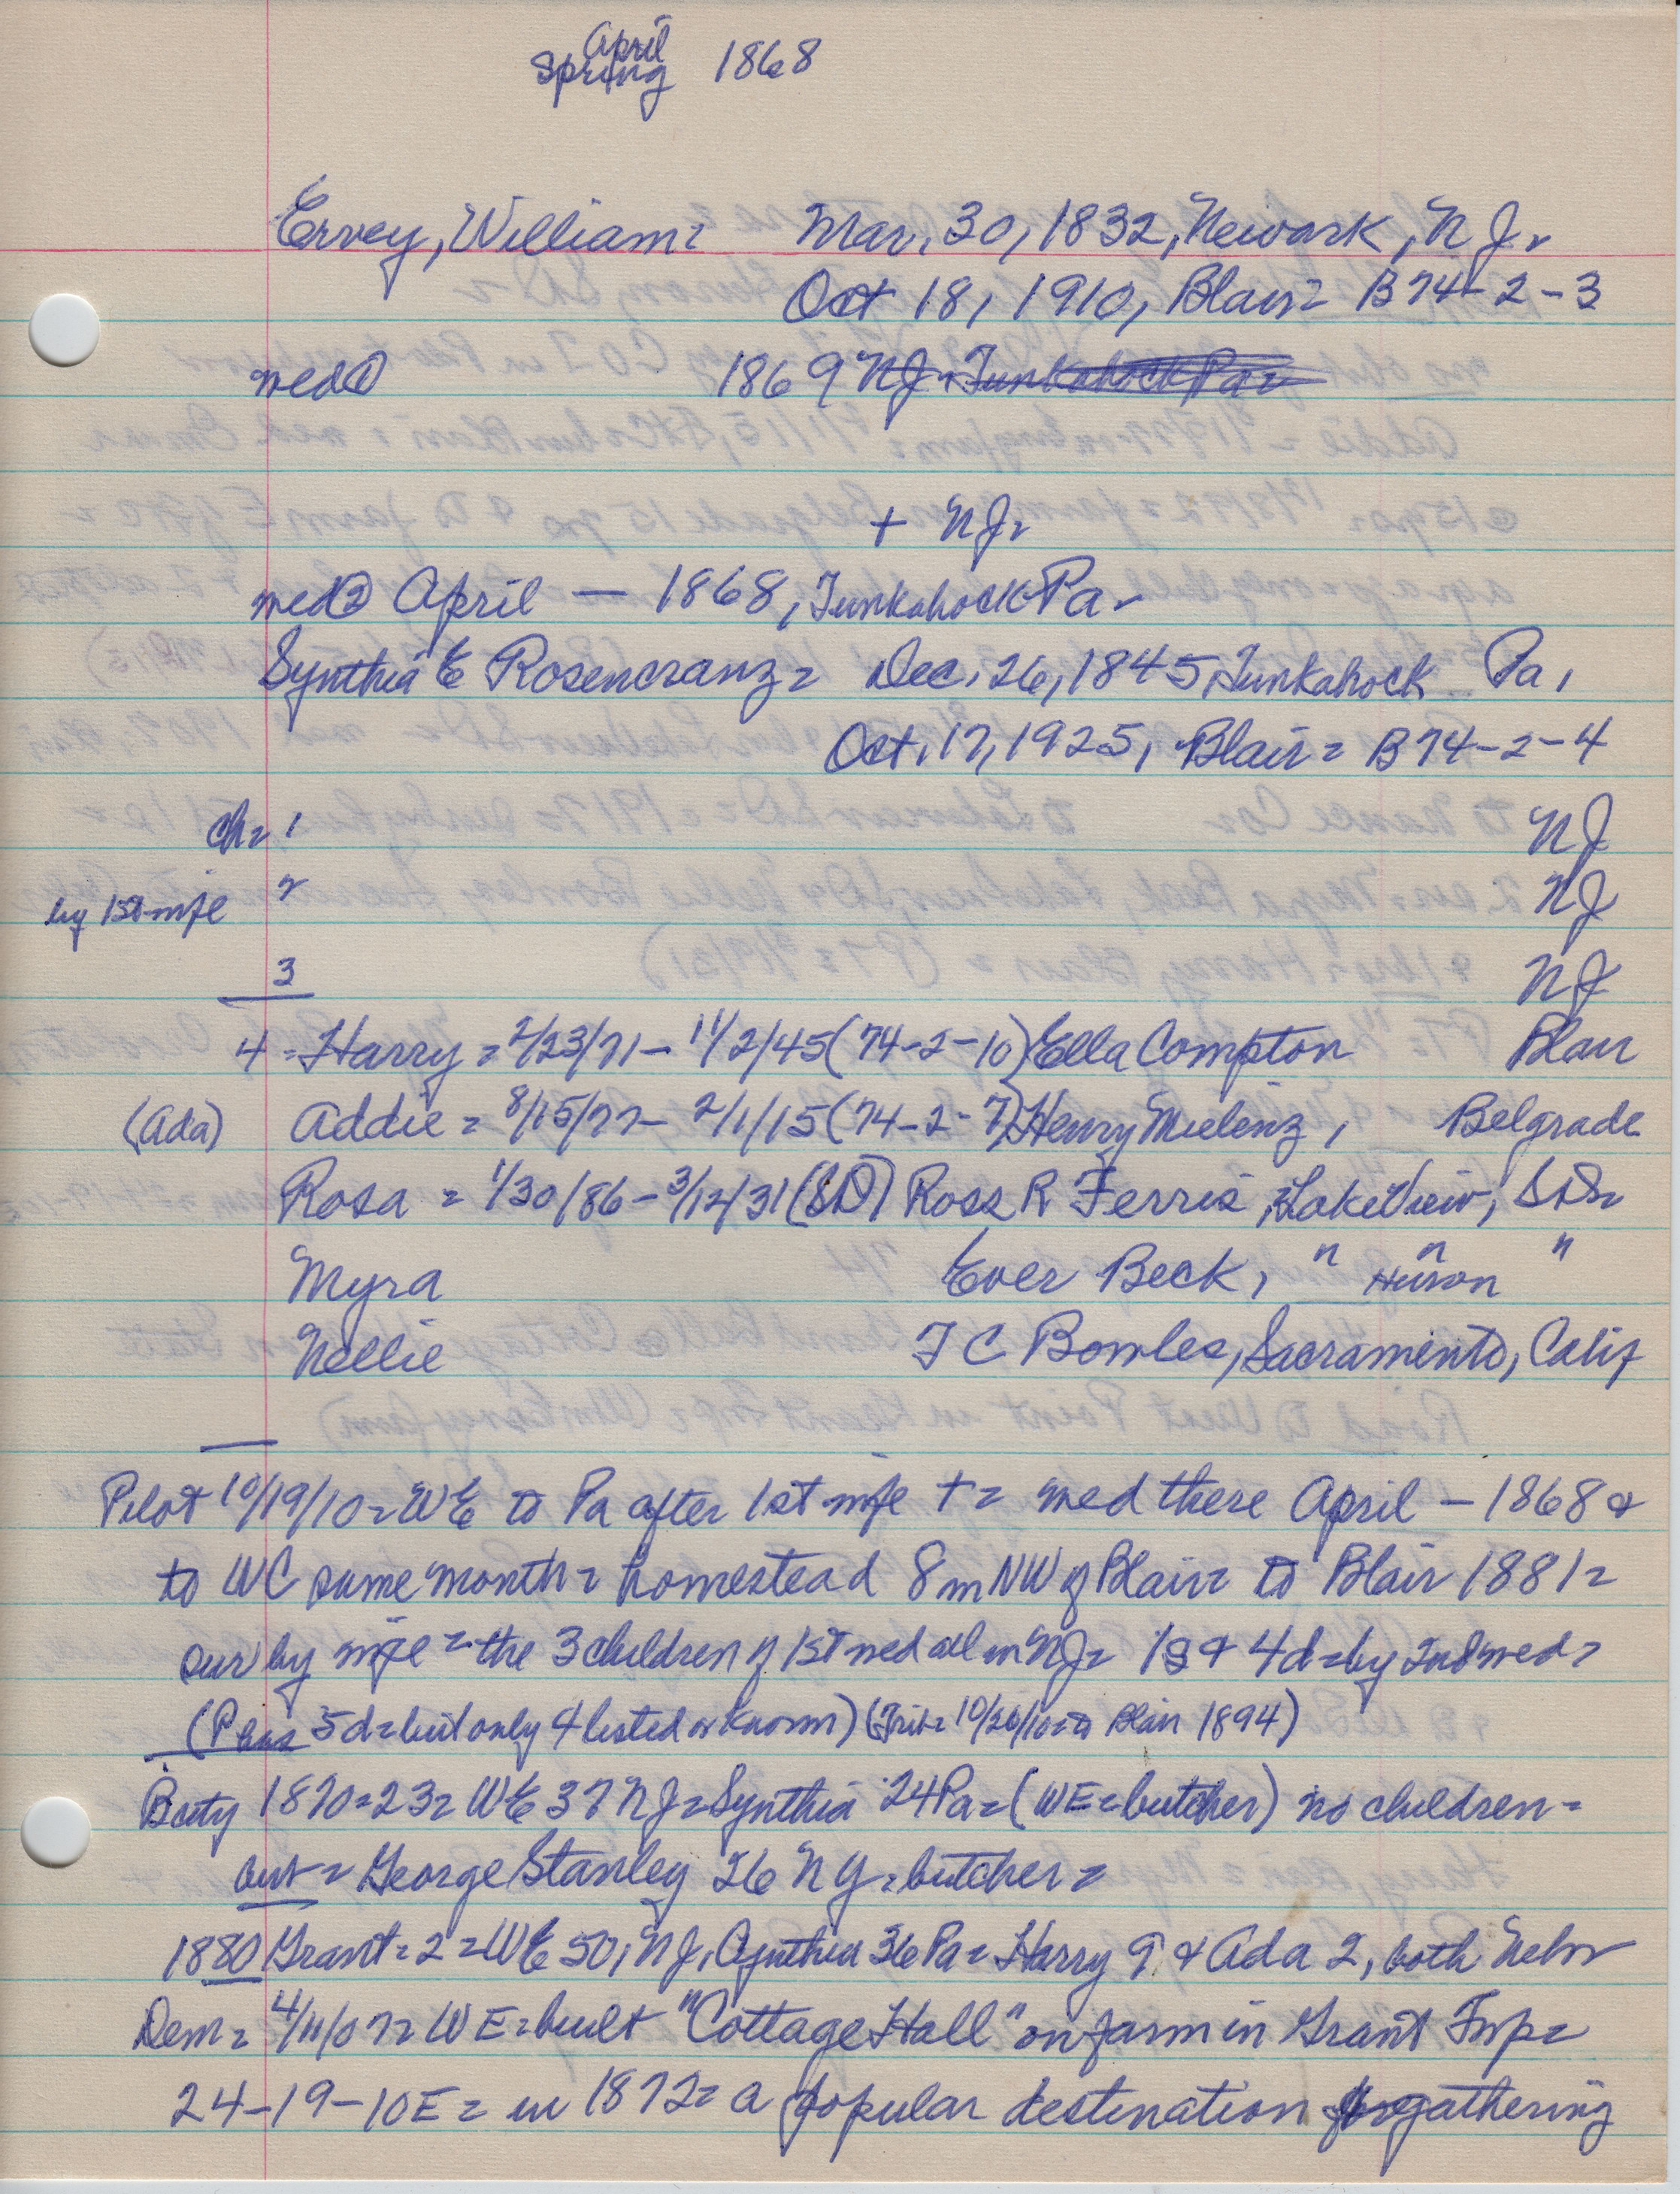 April
Spring 1868
Ervey, William = Mar. 30, 1832, Newark, N J =
Oct 18, 1910, Blair = B 74-2-3
med ① 1869 NJ = Tunkahock Pa =
+ NJ =
med ② April — 1868, Tunkahock Pa =
Synthia E Rosencranz = Dec. 26, 1845, Tunkahock Pa,
Oct. 17, 1925, Blair = B 74-2-4
ch = 1 NJ
by 1st wife 2 NJ
3 NJ
4 = Harry = 2/23/71 - 11/2/45 (74-2-10) Ella Compton Blair
(Ada) Addie = 8/15/77 - 2/1/15 (74-2-7) Henry Mielenz, Belgrade
Rosa = 1/30/86 - 3/12/31 (SD) Ross R Ferris, Lake View, S D =
Myra Ever Beck, " " Huron "
Nellie T C Bowles, Sacramento, Calif
Pilot 10/19/10 = WE to Pa after 1st wife + = med there April — 1868 &
to WC same month = homestead 8 m NW of Blair = to Blair 1881 =
sur by wife = the 3 children of 1st med all in NJ = 1 s & 4 d = by 2nd med =
(P has 5 d = but only 4 listed or known) (Trib = 10/20/10 = to Blair 1894)
1870 = 23 = WE 37 NJ = Synthia 24 Pa = (WE = butcher) no children =
but = George Stanley 26 N Y = butcher =
1880 Grant = 2 = WE 50, NJ, Cynthia 36 Pa = Harry 9 & Ada 2, both Nebr
Dem = 4/11/07 = W E = built "Cottage Hall" on farm in Grant Twp =
24-19-10E = in 1872 = a popular destination for gathering